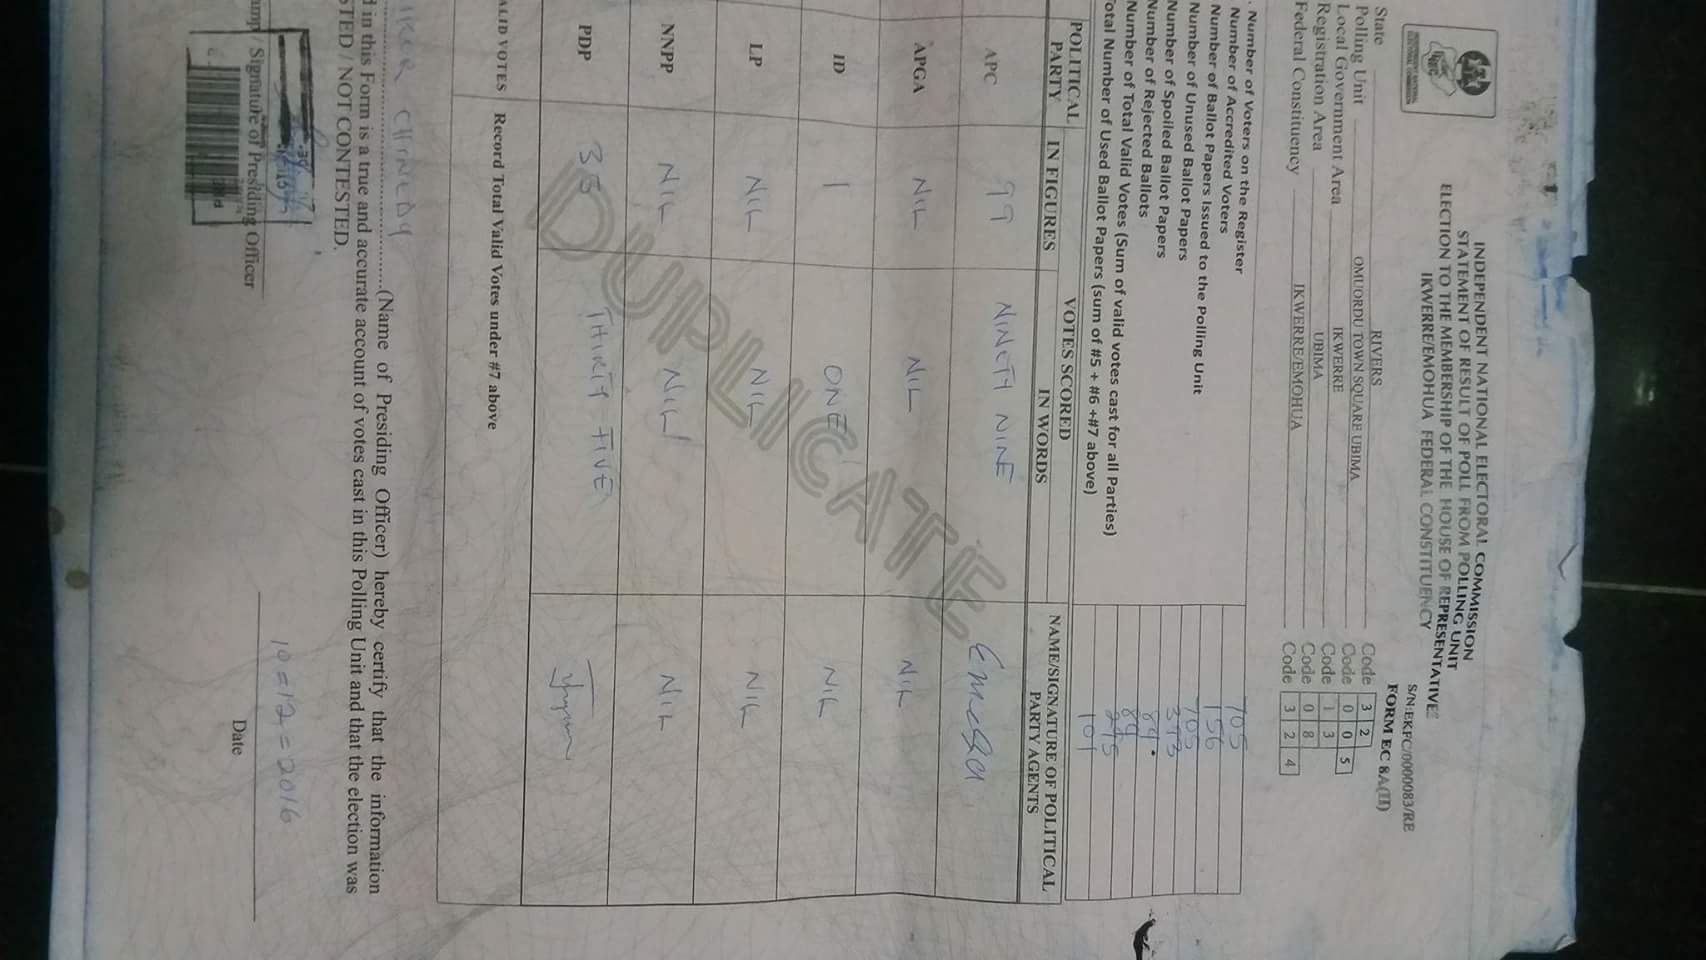 INDEPENDENT NATIONAL ELECTORAL COMMISSION
STATEMENT OF RESULT OF POLL FROM POLLING UNIT
ELECTION TO THE MEMBERSHIP OF THE HOUSE OF REPRESENTATIVES
IKWERRE/EMOHUA FEDERAL CONSTITUENCY
S/N:EKFC/0000083/RE
FORM EC 8A(II)
State RIVERS Code 3 2
Polling Unit OMUORDU TOWN SQUARE UBIMA Code 0 0 5
Local Government Area IKWERRE Code 1 3
Registration Area UBIMA Code 0 8
Federal Constituency IKWERRE/EMOHUA Code 3 2 4
Number of Voters on the Register 705
Number of Accredited Voters 156
Number of Ballot Papers Issued to the Polling Unit 705
Number of Unused Ballot Papers
Number of Spoiled Ballot Papers
Number of Rejected Ballots
Number of Total Valid Votes (Sum of valid votes cast for all Parties)
Total Number of Used Ballot Papers (sum of #5 + #6 +#7 above) 101
POLITICAL PARTY VOTES SCORED NAME/SIGNATURE OF POLITICAL PARTY AGENTS
IN FIGURES IN WORDS
APC 99 NINETY NINE Emeka
APGA NIL NIL NIL
ID 1 ONE NIL
LP NIL NIL NIL
NNPP NIL NIL NIL
PDP 35 THIRTY FIVE
ALID VOTES Record Total Valid Votes under #7 above
DUPLICATE
CHINEDY (Name of Presiding Officer) hereby certify that the information
d in this Form is a true and accurate account of votes cast in this Polling Unit and that the election was
STED / NOT CONTESTED.
amp / Signature of Presiding Officer
10=12=2016
Date